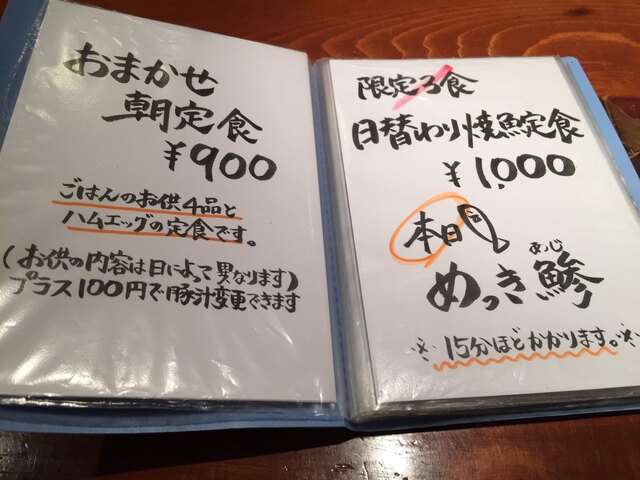 おまかせ
朝定食
¥900
ごはんのお供4品と
ハムエッグの定食です。
(お供の内容は日によって異なります)
プラス100円で豚汁変更できます
限定3食
日替わり焼魚定食
¥1,000
本日
めっき鯵
あじ
※15分ほどかかります。※